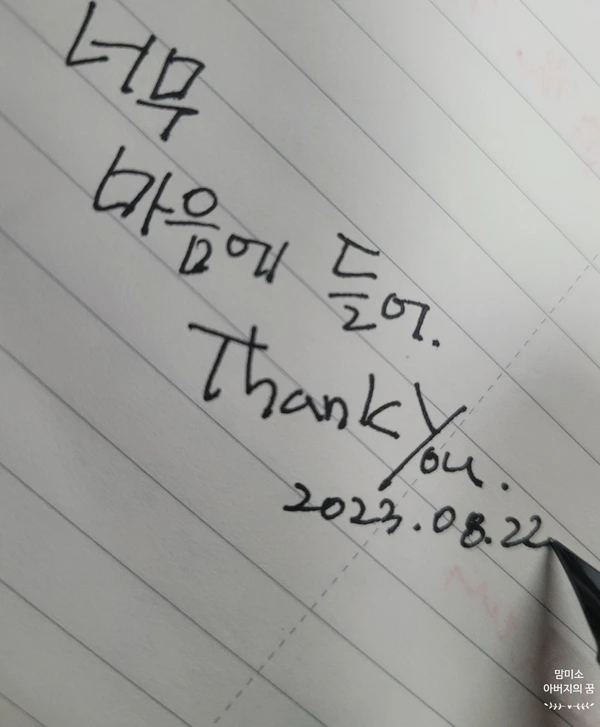 너무
마음에 들어.
Thank You.
2023.08.22
맘미소
아버지의 꿈